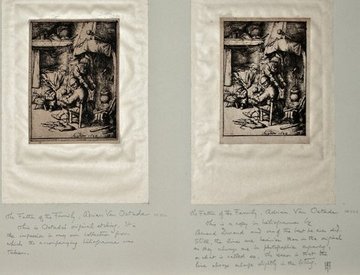 The Father of the Family, Adrian Van Ostade
This is Ostade's original etching. It is
the impression in my own collection from
which the accompanying héliogravure was
taken.
The Father of the Family, Adrian Van Ostade
This is a copy in héliogravure by
Amand Durand and one of the best he ever did.
Still, the lines are heavier than in the original
as they always are in photographic engraving,
which is called so. The reason is that the
line always enlarges slightly in the biting.